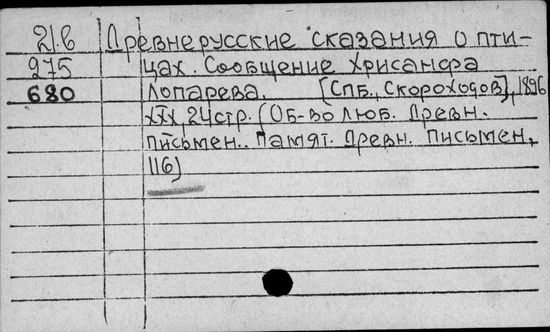 21.6 Древнерусские сказания о пти-
275 цах. Сообщение Хрисанфа
680 Лопарева. [СПб., Скороходов], 1896
XXX, 24 стр. (Об-во люб. древн.
письмен.. Памят. древн. письмен,
116)